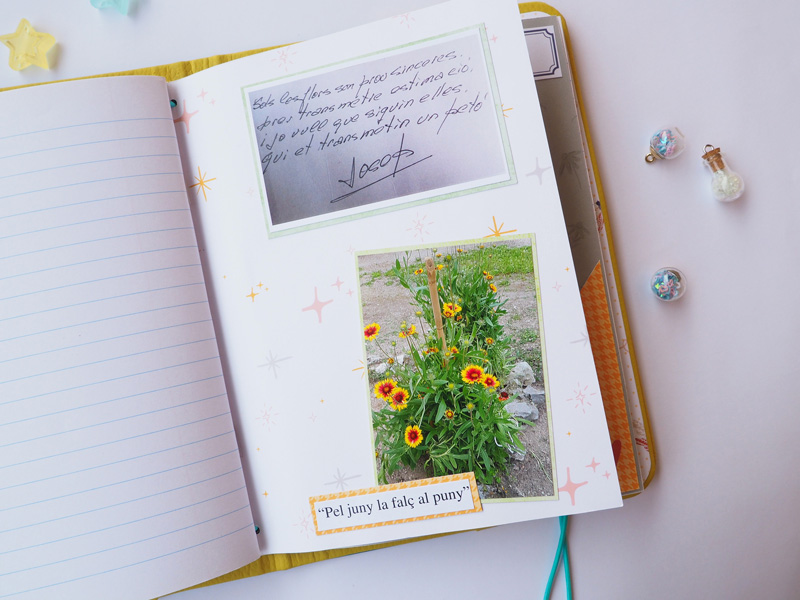 Sols les flors son prou sinceres.
per transmetre estimacio,
i jo vull que siguin elles.
qui et transmetin un petó
Josep
“Pel juny la falç al puny”